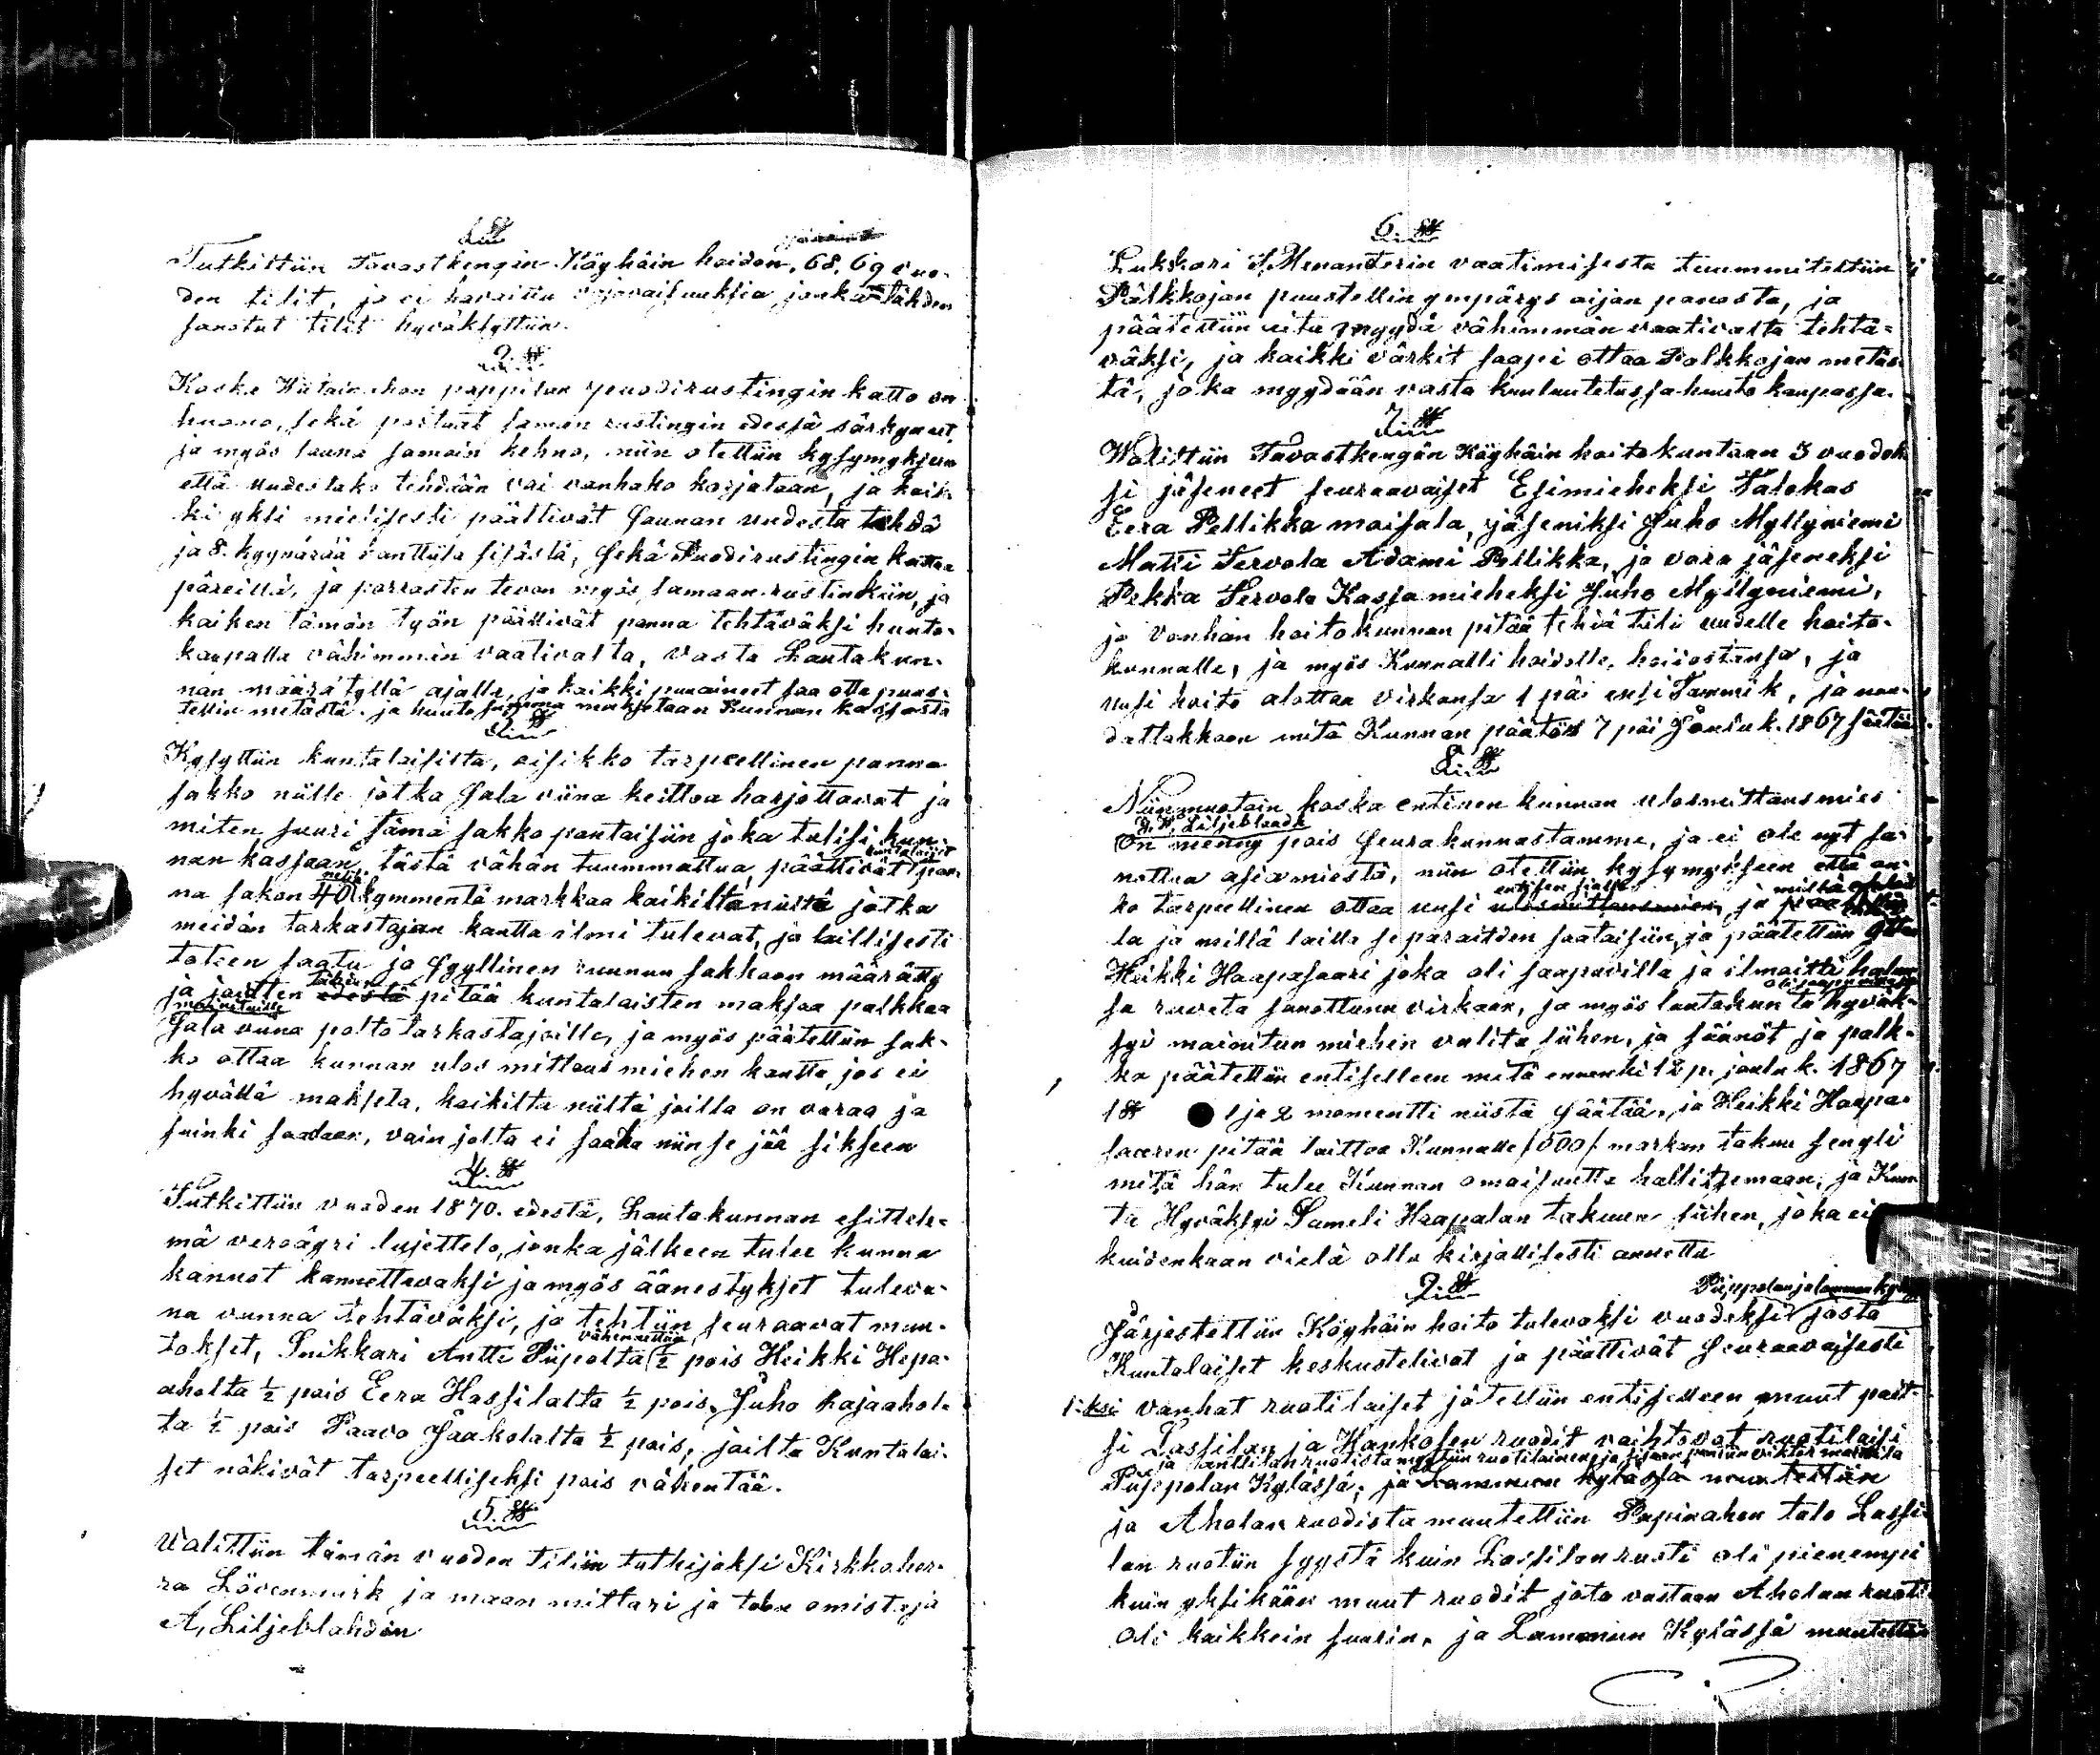 1 §
Tutkittiin Tavastkengin Köyhäin hoidon, 68, 69 vuo-
den tilit, ja ei havaittu vajavaisuuksia jonka tähden
sanotut tilit hyväksyttiin.
2. §
Koska pappilan puodirustingin katto on
huono, sekä portaat saman rustingin edessä särkyneet,
ja myös sauna samoin kehno, niin otettiin kysymykseen
että uudestako tehdään vai vanhako korjataan, ja kaik-
ki yksi mielisesti päättivät saunan uudesta tehdä
ja 8. kyynärää kanttiila sisästä, sekä Puodirustingin kattaa
päreillä, ja porrasten tevon myös samaan rustinkiin, ja
kaiken tämän työn päättivät panna tehtäväksi huuto-
kaupalla vähimmin vaativalta, vasta Lautakun-
nan määrätyllä ajalla, ja kaikki puuaineet saa otta puus-
tellin metästä. ja huuto summa maksetaan Kunnan kassasta
3 §
Kysyttiin kuntalaisilta, oisikko tarpeellinen panna
sakko niille jotka sala viina keittoa harjottavat ja
miten suuri tämä sakko pantaisiin joka tulisi kun-
nan kassaan, tästä vähän tuummattua päättivät kuntalaiset pan-
na sakon neljä 40 kymmentä markkaa kaikilta niiltä jotka
meidän tarkastajan kautta ilmi tulevat, ja laillisesti
toteen saatu ja syyllinen ruunun sakkoon määrätty
ja joitten tähden edestä pitää kuntalaisten maksaa palkkaa
mainituille
Sala viina poltto tarkastajoille, ja myös päätettiin sak-
ko ottaa kunnan ulos mittaus miehen kautta jos ei
hyvällä makseta, kaikilta niiltä joilla on varaa ja
suinki saadaan, vain jolta ei saada niin se jää sikseen
4. §
Tutkittiin vuoden 1870. edestä, Lautakunnan esittele-
mä veroäyri lujettelo, jonka jälkeen tulee kunna
kannot kannettavaksi ja myös äänestykset tuleva-
na vunna tehtäväksi, ja tehtiin seuraavat muu-
tokset, Snikkari Antti Piipolta vähennettiin ½ pois Heikki Hepo-
aholta ½ pois Eera Hassilalta ½ pois, Juho Kajaahol-
ta ½ pois Paavo Jaakolalta ½ pois, joilta Kuntalai-
set näkivät tarpeelliseksi pois vähentää.
5. §
Valittiin tämän vuoden tiliin tutkijaksi Kirkkoher-
ra Lövenmark ja maan mittari ja talon omistaja
A, Liljeblahdin
6. §
Lukkari Menanderin vaatimisesta tuummittettiin
Pälkkojan puustellin ympärys aijan panosta, ja
päätettiin sitä myydä vähimmän vaativalta tehtä-
väksi, ja kaikki värkit saapi ottaa Polkkojan metäs-
tä, joka myydään vasta kuuluutetussa huuto kaupassa.
7 §
Walittiin Tavastkengän Köyhäin hoitokuntaan 3 vuodek-
si jäseneet seuraavaiset Esimieheksi Talokas
Eera Pellikka maisala, jäseniksi Juho Myllyniemi
Matti Tervola Adami Pellikka, ja vara jäseneksi
Pekka Tervola Kassa mieheksi Juho Myllyniemi,
ja vanhan hoitokunnan pitää tehiä tili uudelle hoito-
kunnalle, ja myös Kunnalli hoidolle, hoidostansa, ja
uusi hoito alottaa virkansa 1 päi ensi Tammik, ja nou-
dattakkoon mitä Kunnan päätös 7 päi Jouluk. 1867 säätää
8 §
Niinmuotoin koska entinen kunnan ulosmittausmies
Liljeblaadt
on menny pois seurakunnastamme, ja ei ole nyt sa-
nottua asiamiestä, niin otettiin kysymykseen että on-
ko tarpeellinen ottaa uusi entisen sialle ulosmittausmies, ja
la ja millä lailla se paraitten saataisiin, ja päätettiin ottaa
Heikki Haapasaari joka oli saapuvilla ja ilmoitti halun-
sa ruveta sanottuun virkaan, ja myös lautakunta hyväk-
syi mainitun miehen valita siihen, ja säänöt ja palk-
ka päätettiin entiselleen mitä ennenki 12 p. jouluk. 1867
1 § 1 ja 2 momentti niistä säätää, ja Heikki Haapa-
saaren pitää laittaa Kunnalle /500/ markan takuu sengli
mitä hän tulee Kunnan omaisuutta hallitzemaan, ja Kun-
ta Hyväksyi Sameli Haapalan takuun siihen, joka ei
kuidenkaan vielä ollu kirjallisesti annettu
9. §
Piippolan ja Lamun kylä
Järjestettiin Köyhäin hoito tulevaksi vuodeksi josta
Kuntalaiset keskustelivat ja päättivät seuraavaisesti
1:ksi vanhat ruotilaiset jätettiin entiselleen muut pait-
si Lassilan ja Hankosen ruodit vaihtovat ruotilaisi
Piippolan Kylässä, ja Lammun kylässä muutettiin
ja Aholan ruodista muutettiin Papinahon talo Lassi-
lan ruotiin syystä kuin Lassilan ruoti oli pienempi
kuin yksikään muut ruodit jota vastaan Aholan ruoti
oli kaikkein suurin, ja Lammun Kylässä muutettiin